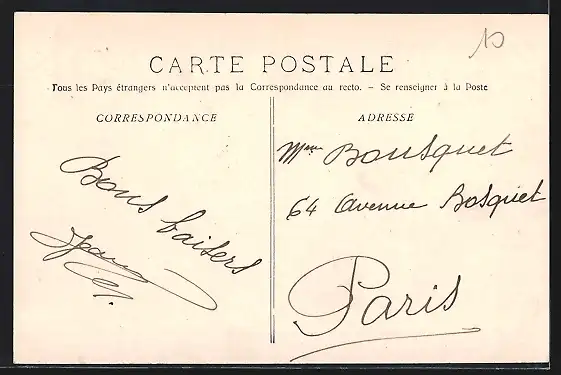 CARTE POSTALE
Tous les Pays étrangers n'acceptent pas la Correspondance au recto. - Se renseigner à la Poste
CORRESPONDANCE
Bons baisers
ADRESSE
Mme Bousquet
64 Avenue Bosquet
Paris